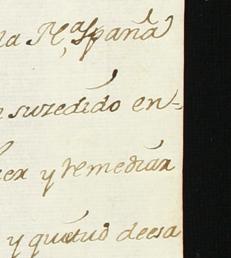 la N.ª España
suzedido en-
er y remediar
y quietud deesa